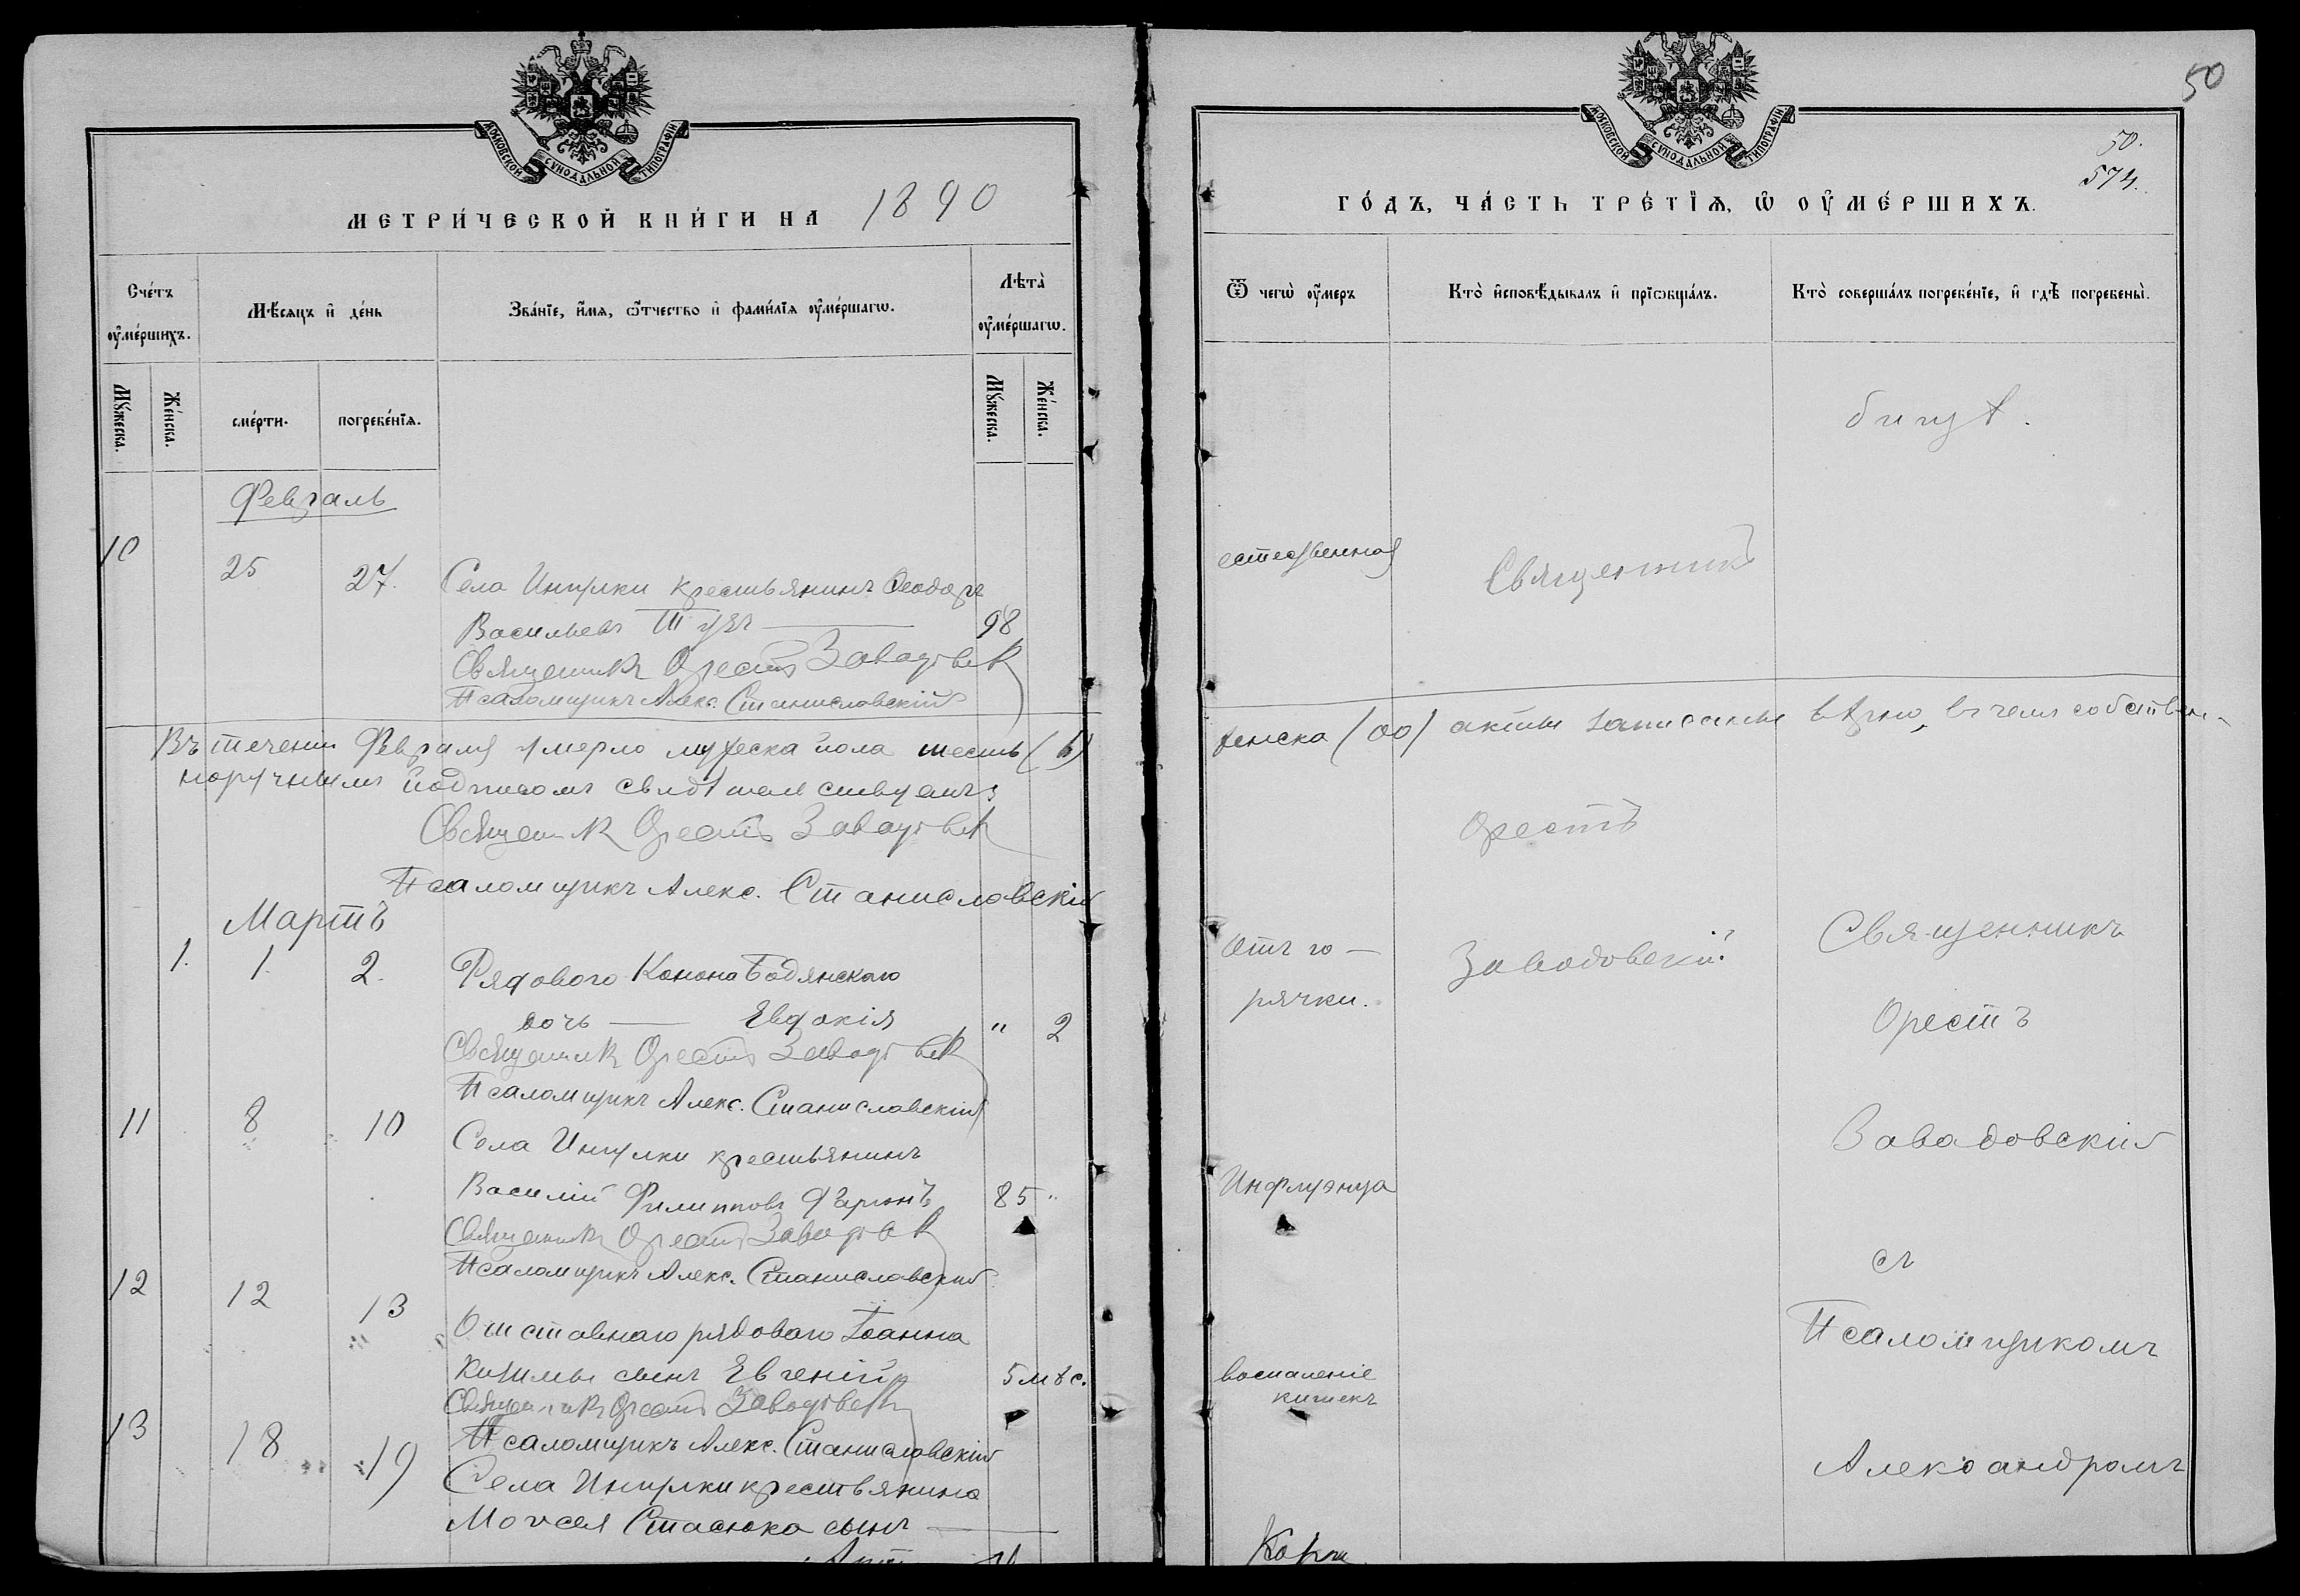 50
50.
574.
МОСКОВСКОЙ СѴНОДАЛЬНОЙ ТИПОГРАФІИ
МЕТРИ́ЧЕСКОЙ КНИ́ГИ НА 1890
Сче́тъ ᲂу҆ме́ршихъ.
Мѣ́сѧцъ и҆ де́нь
Зва́нїе, и҆́мѧ, ѻ҆́тчество и҆ фами́лїѧ ᲂу҆ме́ршагѡ.
Лѣта̀ ᲂу҆ме́ршагѡ.
Мꙋ́жеска.
Же́нска.
сме́рти.
погребе́нїѧ.
Мꙋ́жеска.
Же́нска.
Февраль
10 25 27. Села Ингулки крестьянинъ Ѳеодоръ
Васильевъ 98
Священникъ Орестъ Завадовскій
Псаломщикъ Алекс. Станиславскій
Въ теченіи Февраля умерло мужеска пола шесть (6)
норучнымъ подписомъ свидѣтельствуемъ
Священникъ Орестъ Завадовскій
Псаломщикъ Алекс. Станиславскій
Мартъ
1. 1. 2. Рядового Конона Бодянскаго
дочь — Евдокія " 2
Священникъ Орестъ Завадовскій
Псаломщикъ Алекс. Станиславскій
11 8 10 Села Ингулки крестьянинъ
Василій Филипповъ 85 "
Священникъ Орестъ Завадовскій
Псаломщикъ Алекс. Станиславскій
12 12 13 Отставнаго рядоваго Іоанна
сынъ Евгеній 5 мѣс.
Священникъ Орестъ Завадовскій
Псаломщикъ Алекс. Станиславскій
13 18 19 Села Ингулки крестьянина
Моисея Стасюка сынъ —
МОСКОВСКОЙ СѴНОДАЛЬНОЙ ТИПОГРАФІИ
ГО́ДЪ, ЧА́СТЬ ТРЕ́ТЇѦ, Ѡ҆ ОУ҆МЕ́РШИХЪ.
Ѿ чегѡ̀ ᲂу҆́меръ
Кто̀ и҆сповѣ́дывалъ и҆ прїѡбща́лъ.
Кто̀ соверша́лъ погребе́нїе, и҆ гдѣ̀ погребены̀.
бищѣ.
естественная
Священникъ
женска (00) акты записаны вѣрно, въ чемъ собствен-
Орестъ
Отъ го-
рячки.
Заводовскій.
Священникъ
Орестъ
Завадовскій
Инфлуэнца
съ
Псаломщикомъ
воспаленіе
кишекъ
Александромъ